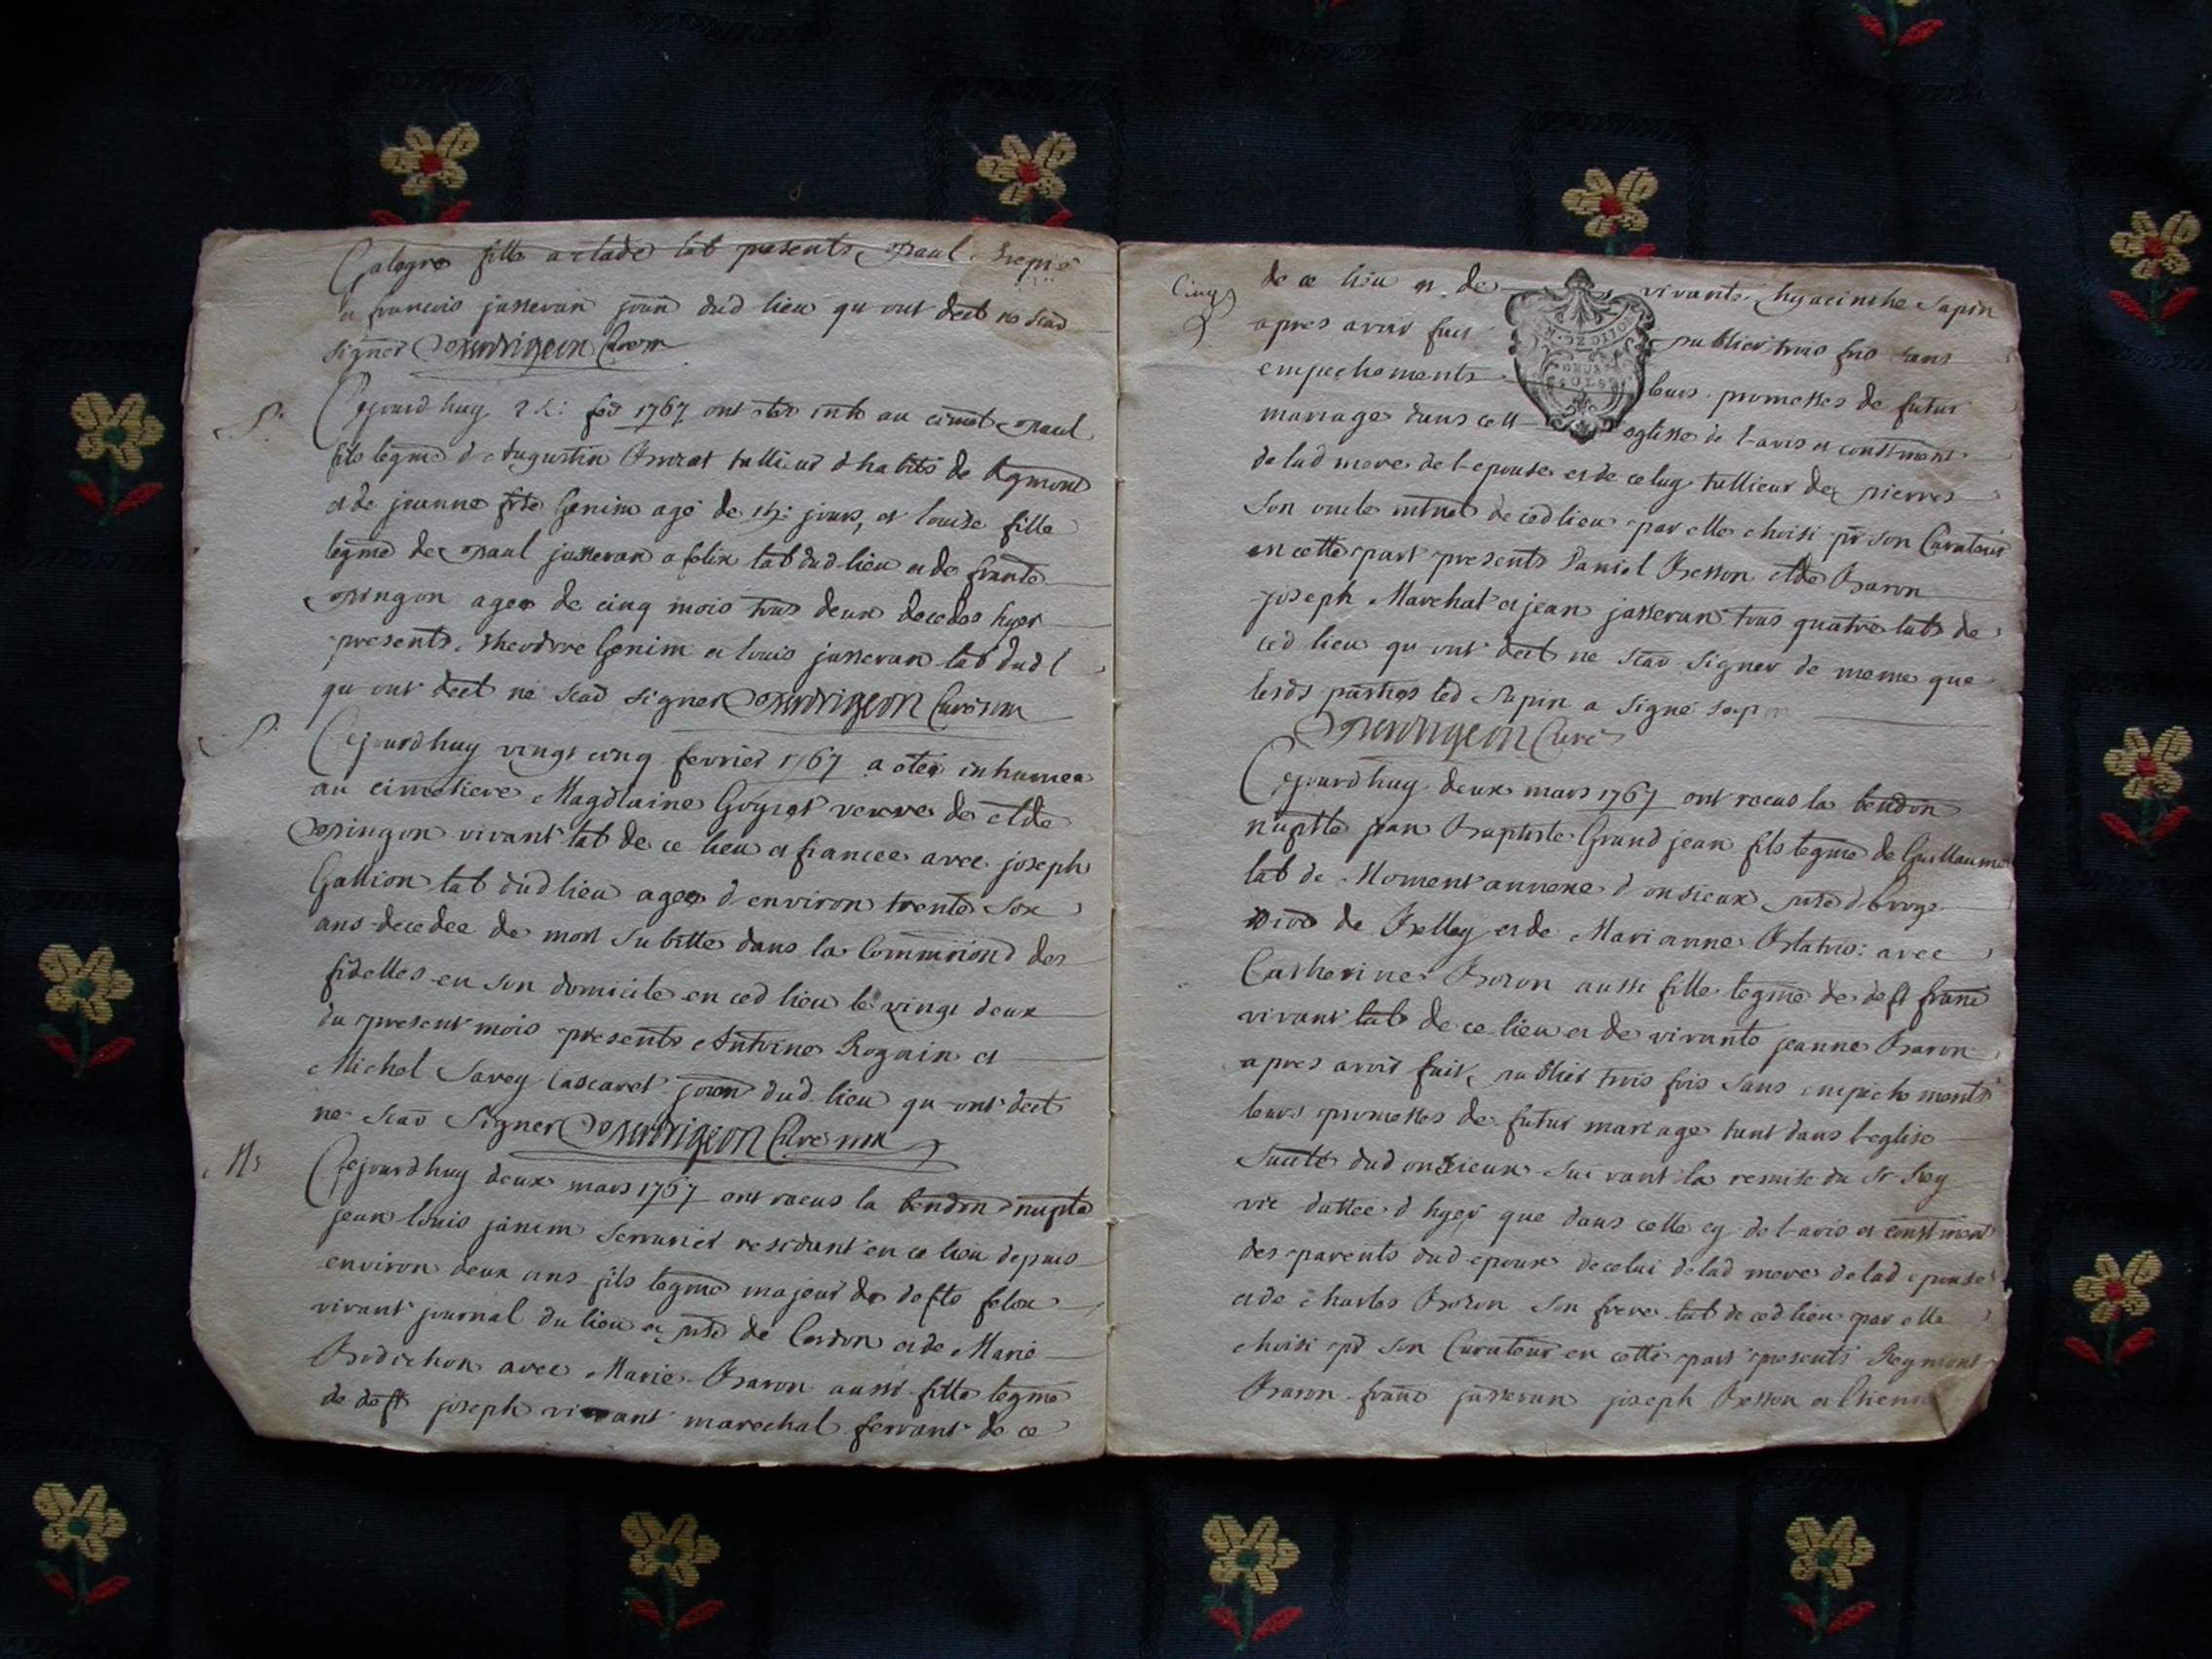 fille a clade lab presents Paul
et francois jasseran journ dud lieu qu ont declt ne scav
signer
S.
Cejourdhuy 24: fev 1767 ont ete inh au cimet Paul
fils legme d Augustin tallieur d habits de
et de jeanne Genim agé de jours, et louise fille
legme de Paul jasseran a felix lab dud lieu et de
pingon agee de cinq mois tous deux decedes hyer
presents theodore Genim et louis jasseran lab dud l
qu ont declt ne scav signer
S.
Cejourdhuy vingt cinq fevrier 1767 a eteé inhumee
au cimetiere Magdlaine veuve de clde
pingon vivant lab de ce lieu et fiancee avec joseph
Gallion lab dud lieu agee d environ trente six
ans decedee de mort subitte dans la Communion des
fidelles en son domicile en ced lieu le vingt deux
du present mois presents Antoine Rogain et
Michel Savey cascaret journ dud lieu qu ont declt
ne scav signer
Cejourdhuy deux mars 1767 ont receus la bendon nuptle
jean louis janim serrurier residant en ce lieu depuis
environ deux ans fils legme majeur de defte felox
vivant journal du lieu et psse de Cordon et de Marie
Bodichon avec Marie Baron aussi fille legme
de deft joseph vivant marechal ferrant de ce
Cinq
de ce lieu et de vivante hyacinthe Sapin
apres avoir fait publier trois fois sans
empechements leurs promesses de futur
mariage dans cette eglisse de l avis et constment
de lad mere de l epouse et de celuy tullieur de pierres
son oncle de ced lieu par elle choisi pr son Curateur
en cette part presents Daniel Besson clde Baron
joseph Marchat et jean jasseran tous quatre labs de
ced lieu qu ont declt ne scav signer de meme que
lesds parties led Sapin a signé sapin
Curé
Cejourdhuy deux mars 1767 ont receus la bendon
nuptle jean Baptiste Grand jean fils legme de Guillaume
lab de Moment annexe d onsieux
de Belley et de Marianne avec
Catherine Boron aussi fille legme de deft franc
vivant lab de ce lieu et de vivante jeanne Baron
apres avoir fait publier trois fois sans empechements
leurs promesses de futur mariage tant dans l eglise
dud onsieux suivant la remise du Sr Rey
vic dattee d hyer que dans celle cy de l avis et constment
des parents dud epoux de celui de lad mere de lad epouse
et de charles Boron son frere lab de ced lieu par elle
choisi pr son Curateur en cette part presents Reymont
Baron franc jasseran joseph Besson et